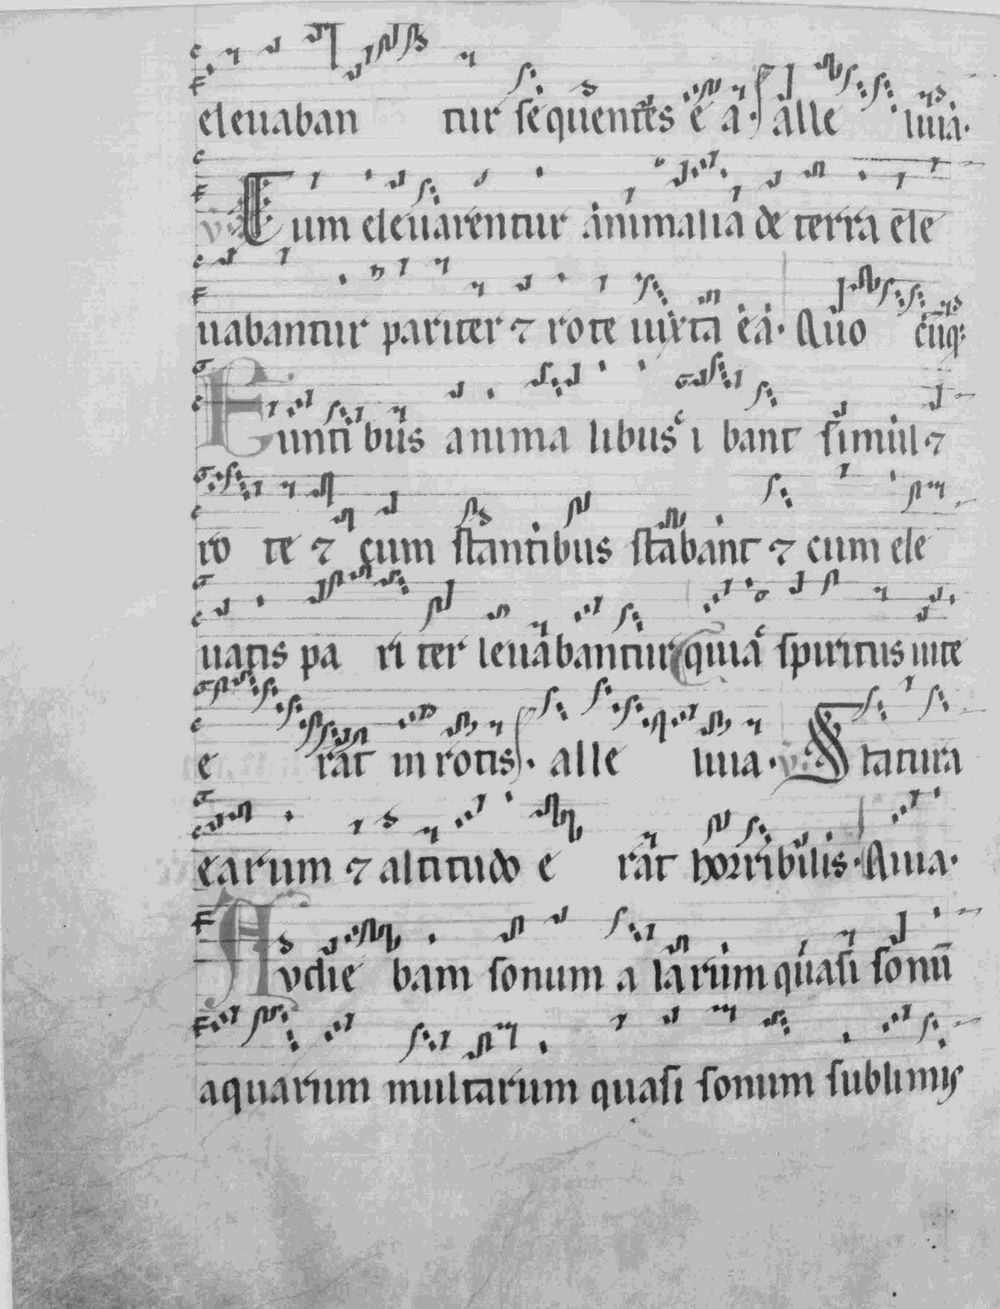 eleuaban tur sequentes e a. alle luia.
V. Cum eleuarentur animalia de terra ele
uabantur pariter ⁊ rote iuxta ea. Quo cūq;
Euntibus animalibus i bant simul ⁊
ro te ⁊ cum stantibus stabant ⁊ cum ele
uatis pa ri ter leuabantur Quia spiritus uite
e rat in rotis. alle luia. V. Statura
earum ⁊ altitudo e rat horribilis. Quia.
Audie bam sonum a larum quasi sonū
aquarum multarum quasi sonum sublimis